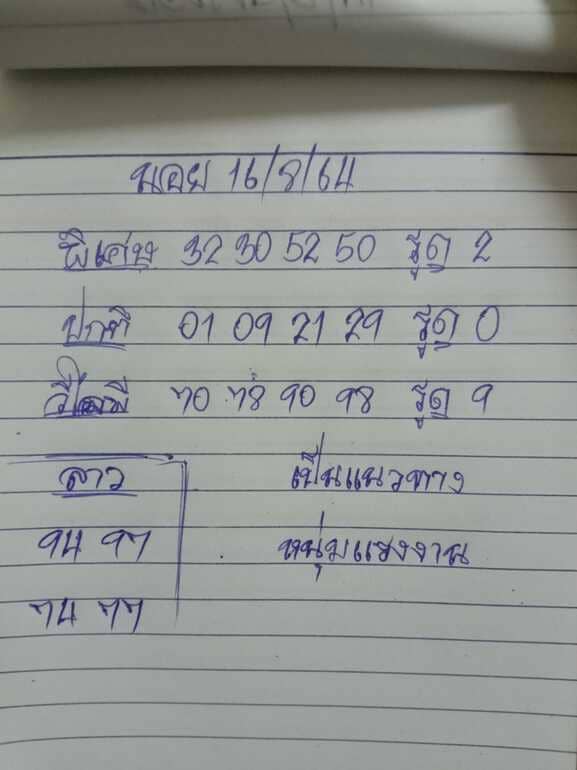 นอย 16/8/64
พิเศษ 32 30 52 50 รูด 2
ปกติ 01 09 21 29 รูด 0
วีไอพี 70 78 90 98 รูด 9
ลาว
94 97
74 77
เป็นแนวทาง
หนุ่มแรงงาน